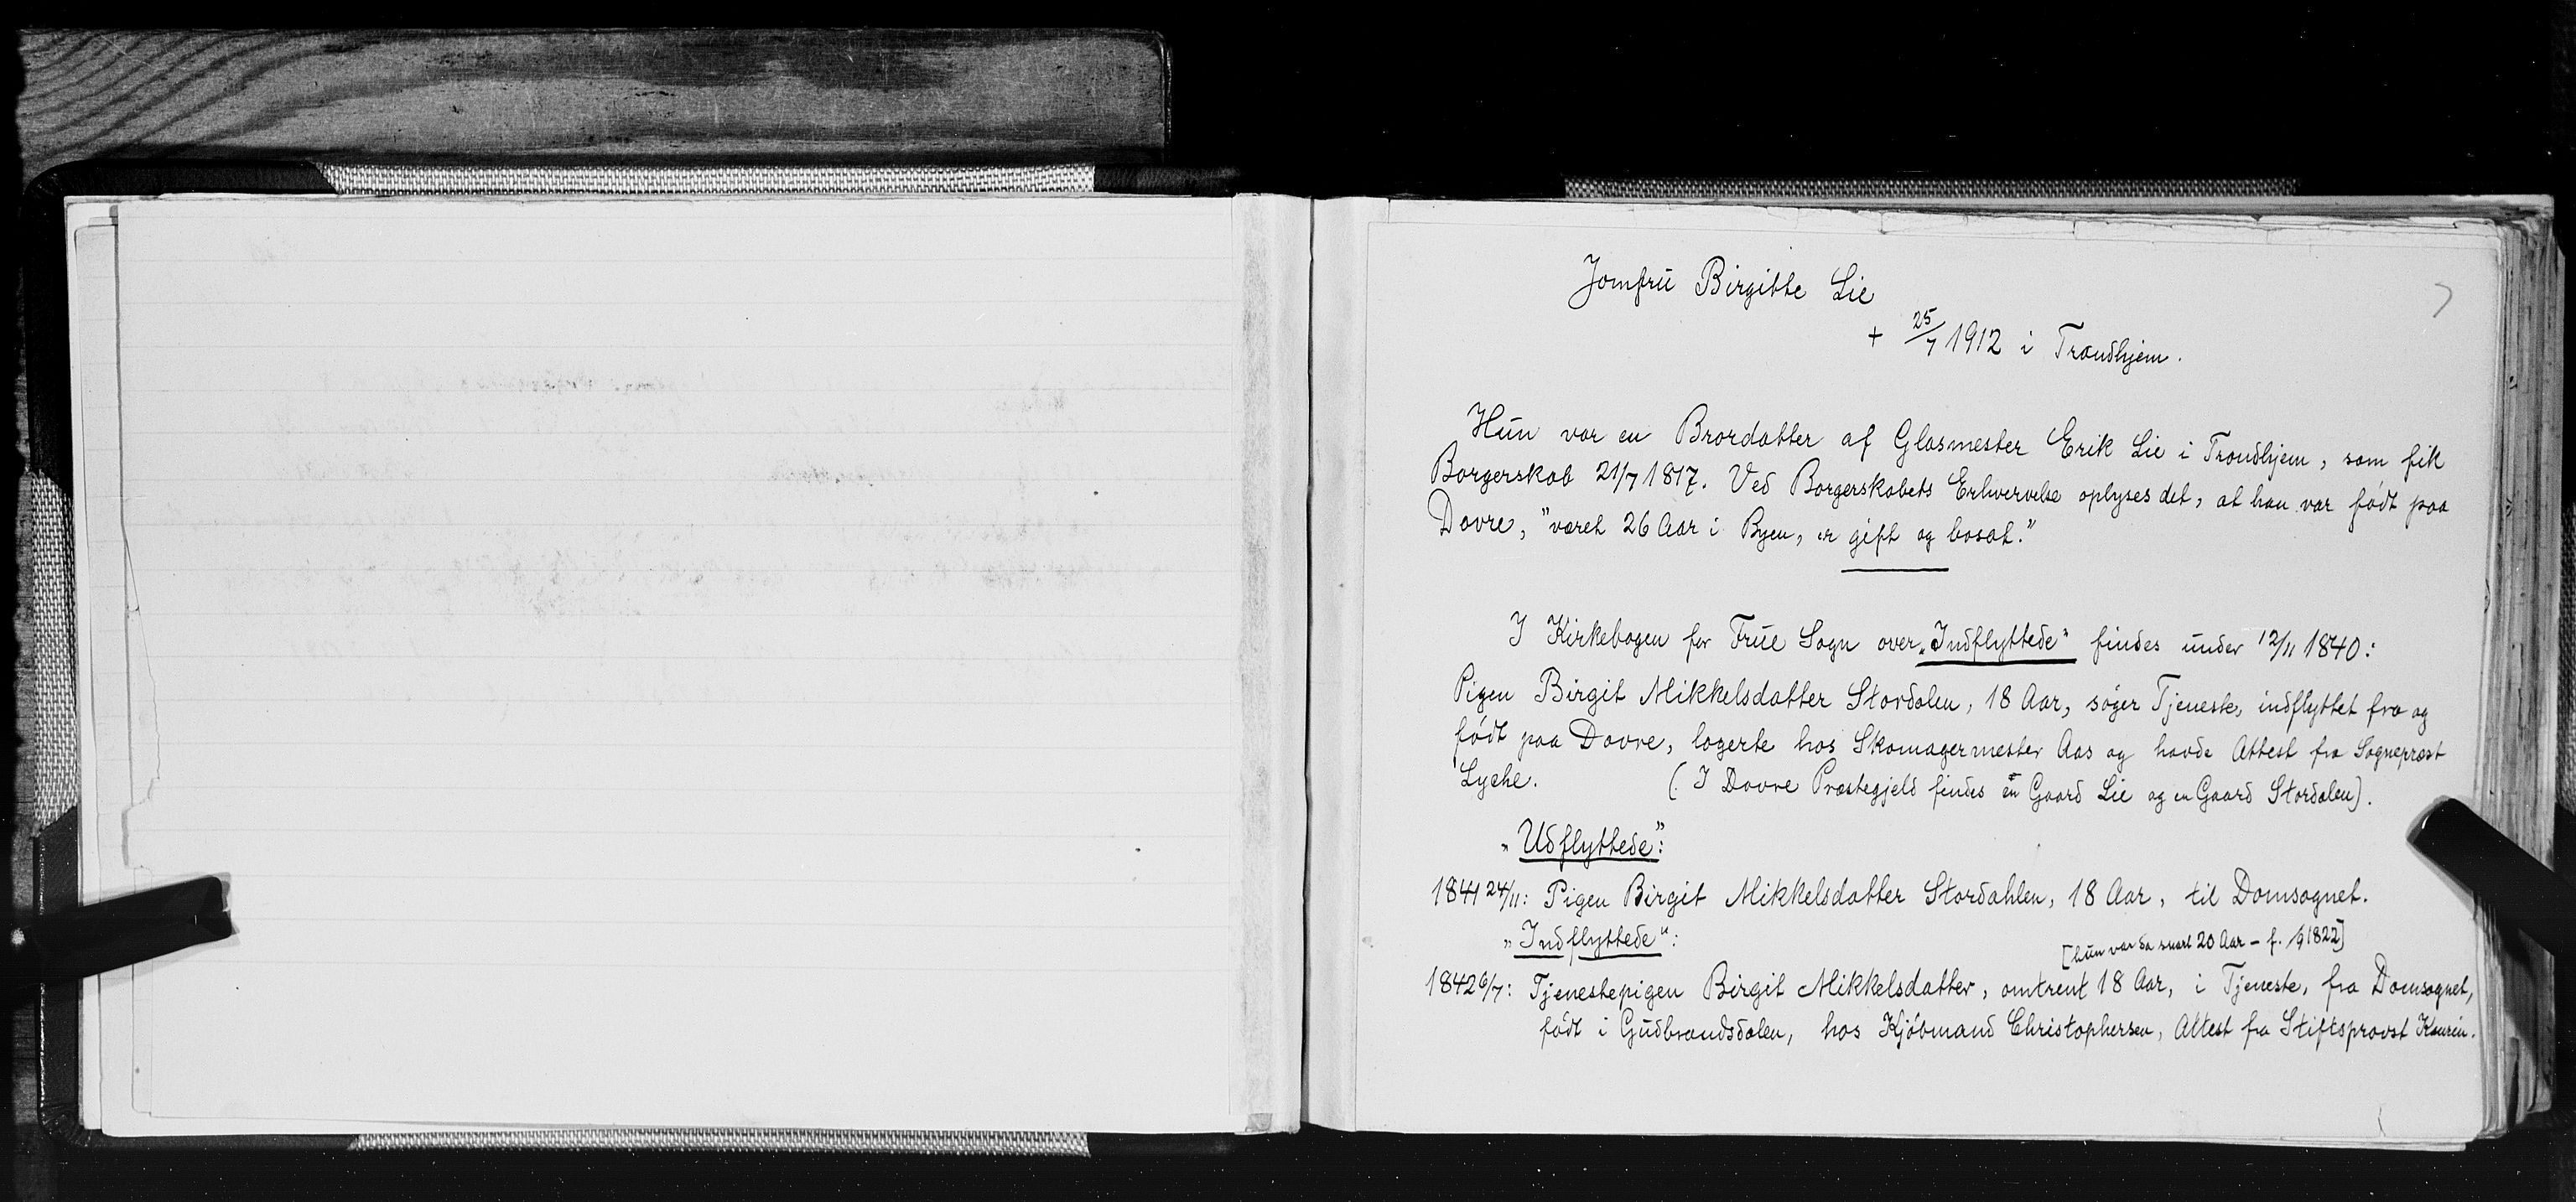 7
Jomfru Birgitte Lie
+ 25/7 1912 i Trondhjem.
Hun var en Brordatter af Glasmester Erik Lie i Trondhjem, som fik
Borgerskab 21/7 1817. Ved Borgerskabets Erhvervelse oplyses det, at han var født paa
Dovre, "været 26 Aar i Byen, er gift og bosat."
I Kirkebogen for Frue Sogn over „Indflyttede" findes under 12/11 1840:
Pigen Birgit Mikkelsdatter Stordalen, 18 Aar, søger Tjeneste, indflyttet fra og
født paa Dovre, logerte hos Skomagermester Aas og havde Attest fra Sogneprest
Lyche. (I Dovre Præstegjeld findes en Gaard Lie og en Gaard Stordalen).
„Udflyttede":
1841 24/11: Pigen Birgit Mikkelsdatter Stordahlen, 18 Aar, til Domsognet.
„Indflyttede":
[hun var da snart 20 Aar – f. /9 1822]
1842 6/7: Tjenestepigen Birgit Mikkelsdatter, omtrent 18 Aar, i Tjeneste, fra Domsognet,
født i Gudbrandsdalen, hos Kjøbmand Christophersen, Attest fra Stiftsprovst